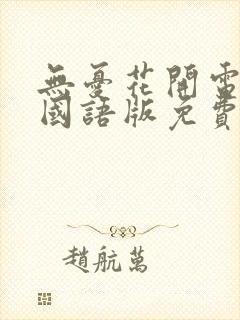 無憂花開電
國語版免費
趙航萬